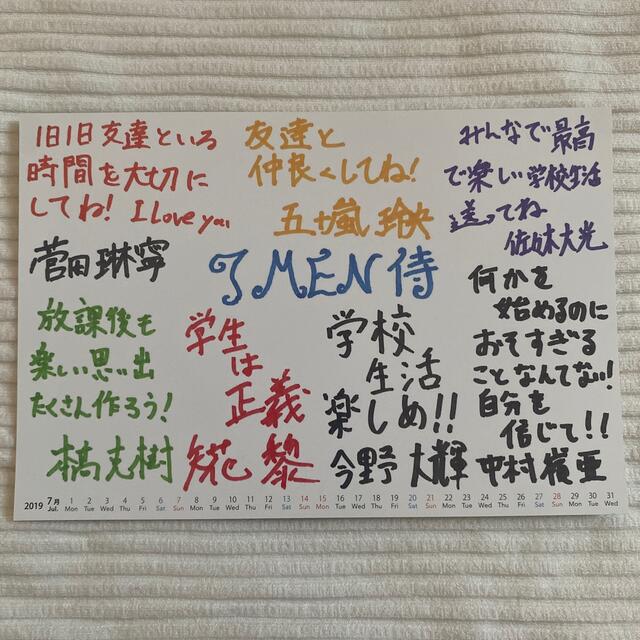 1日1日友達といる
時間を大切に
してね! I love you
菅田琳寧
友達と
仲良くしてね!
五十嵐玲央
みんなで最高
で楽しい学校生活
送ってね
佐々木大光
7 MEN 侍
放課後も
楽しい思い出
たくさん作ろう!
本髙克樹
学生
は
正義
矢花 黎
学校
生活
楽しめ!!
今野 大輝
何かを
始めるのに
おそすぎる
ことなんてない!
自分を
信じて!!
中村嶺亜
2019 7月 Jul. 1 2 3 4 5 6 7 8 9 10 11 12 13 14 15 16 17 18 19 20 21 22 23 24 25 26 27 28 29 30 31
Mon Tue Wed Thu Fri Sat Sun Mon Tue Wed Thu Fri Sat Sun Mon Tue Wed Thu Fri Sat Sun Mon Tue Wed Thu Fri Sat Sun Mon Tue Wed